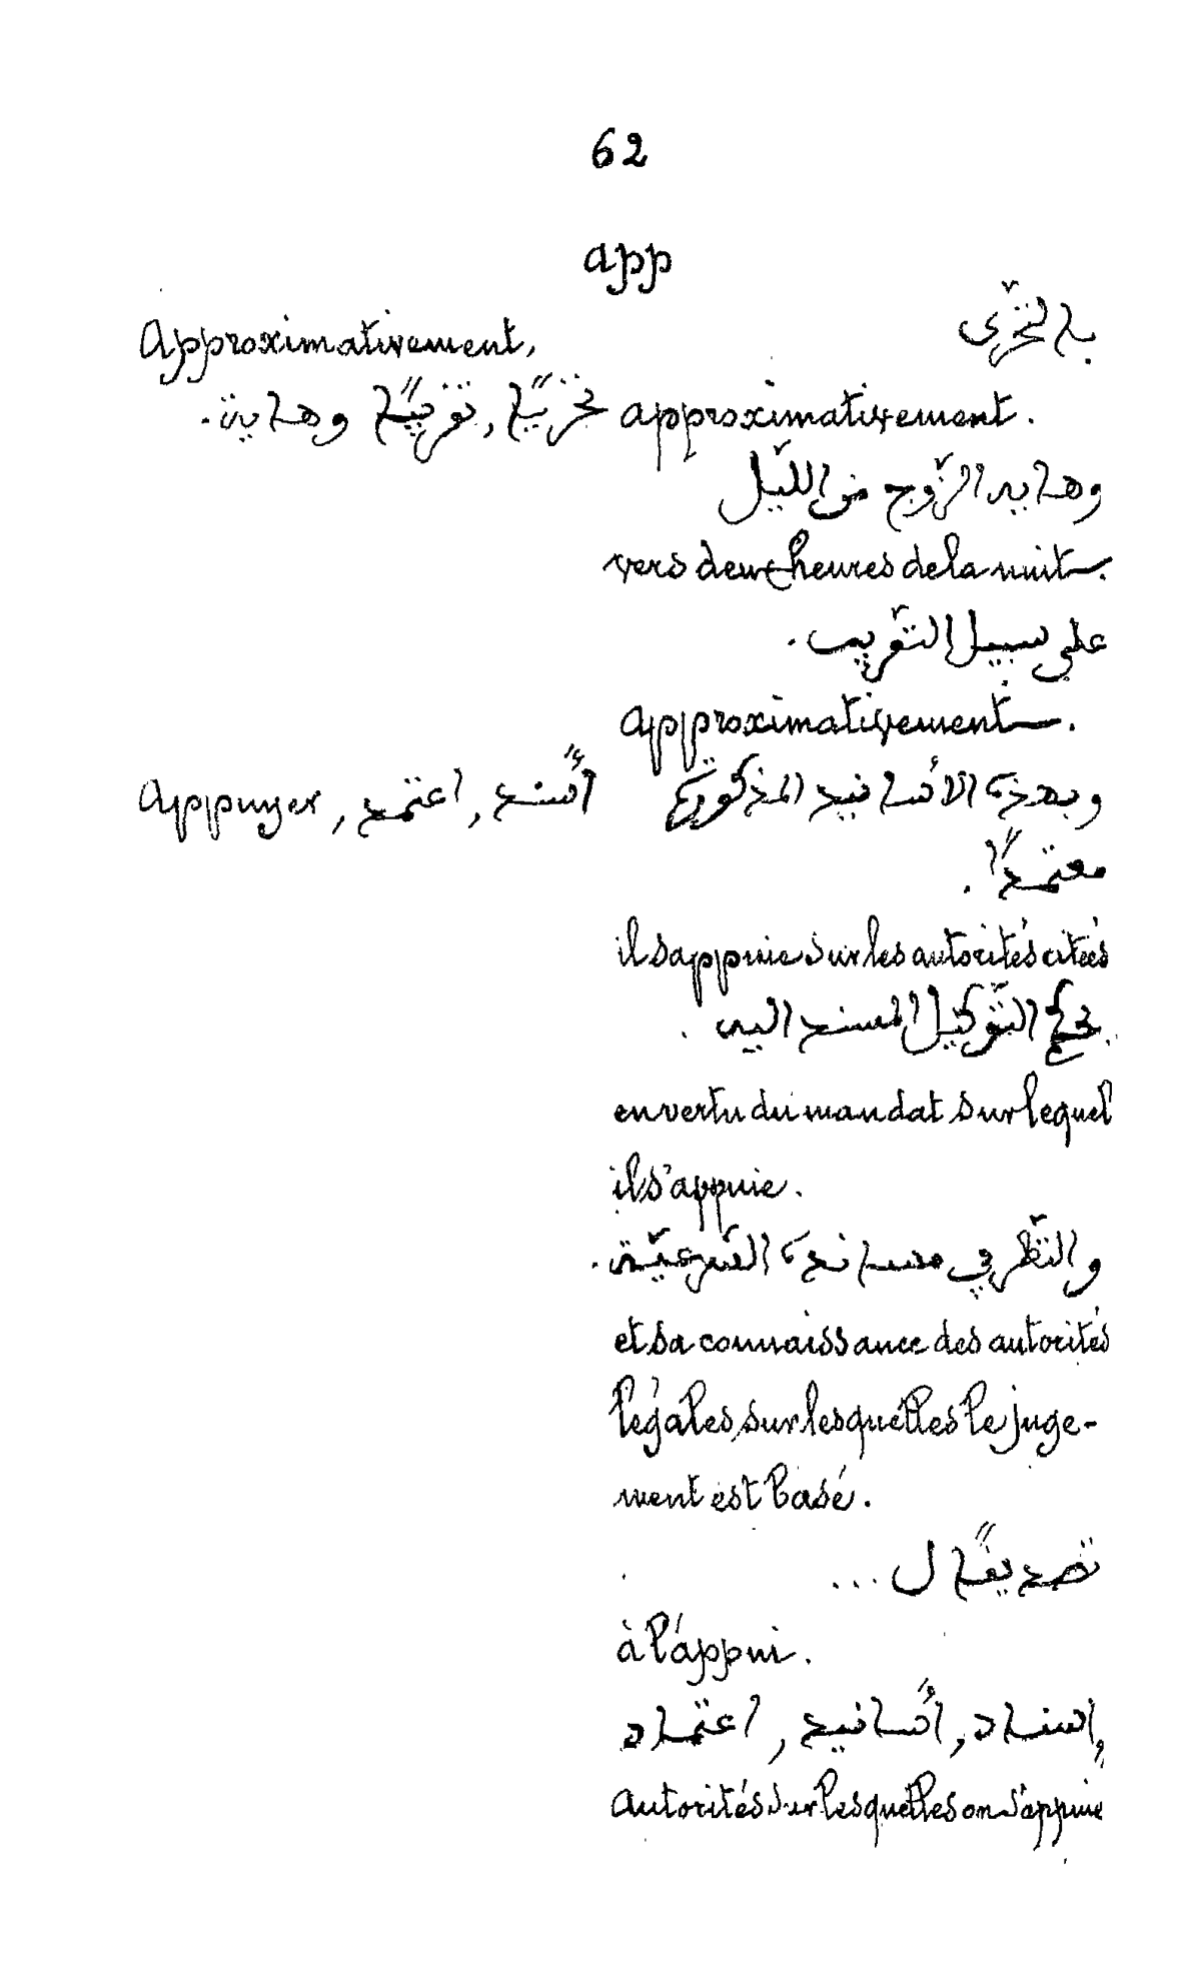 62
app
بالتحرّى
Approximativement,
تحريًّا, تقريبًا وهاية.
approximativement.
وهايه الزّوج من اللّيل
vers deux heures de la nuit.
على سبيل التّقريب.
approximativement.
Appuyer, اعتمد, أسند
وبهذه الأسانيد المذكورة
معتمدًا.
il s'appuie sur les autorités citées
بحكم التّوكيل المسند اليه.
en vertu du mandat sur lequel
il s'appuie.
والنّظر في مساندة الشّرعيّة.
et sa connaissance des autorités
légales sur lesquelles le juge-
ment est basé.
تصديقًا ل...
à l'appui.
إسناد, أسانيد, اعتماد
autorités sur lesquelles on s'appuie